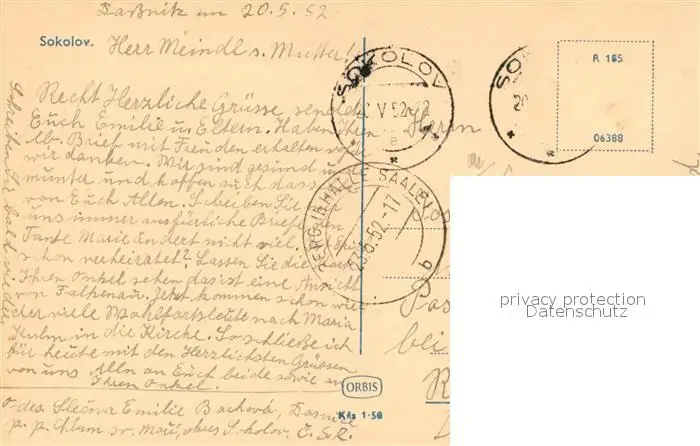 20.5.52
Sokolov.
Herr Meindl u. Mutter!
Recht Herzliche Grüsse sendet
Euch Emilie u. Eltern. Haben Ihren
lb. Brief mit Freuden erhalten
wir danken. Wir sind gesund u.
munter und hoffen auch dass
von Euch Allen. Schreiben Sie
uns immer ausführliche Briefe
Tante Marie ändert nicht viel,
schon verheiratet? Lassen Sie
Ihren Onkel sehen das ist eine Ansicht
von Falkenau. Jetzt kommen schon wie
der viele Wahlfahrtsleute nach Maria
Kulm in die Kirche. So schließe ich
für heute mit den Herzlichsten Grüssen
von uns Alln an Euch beide sowie an
Ihren Onkel.
Schreiben Sie bald wieder
o-des. Slečna Emilie Bachová,
p. p. Chlum sv. Maří, okres Sokolov. Č.S.R.
SOKOLOV
V 52-
a
Herrn
SO
20
R 185
06388
BERG (BHALLE SAALE)
23.5.52.-17
b
bei
ORBIS
Kčs 1·50
privacy protection
Datenschutz